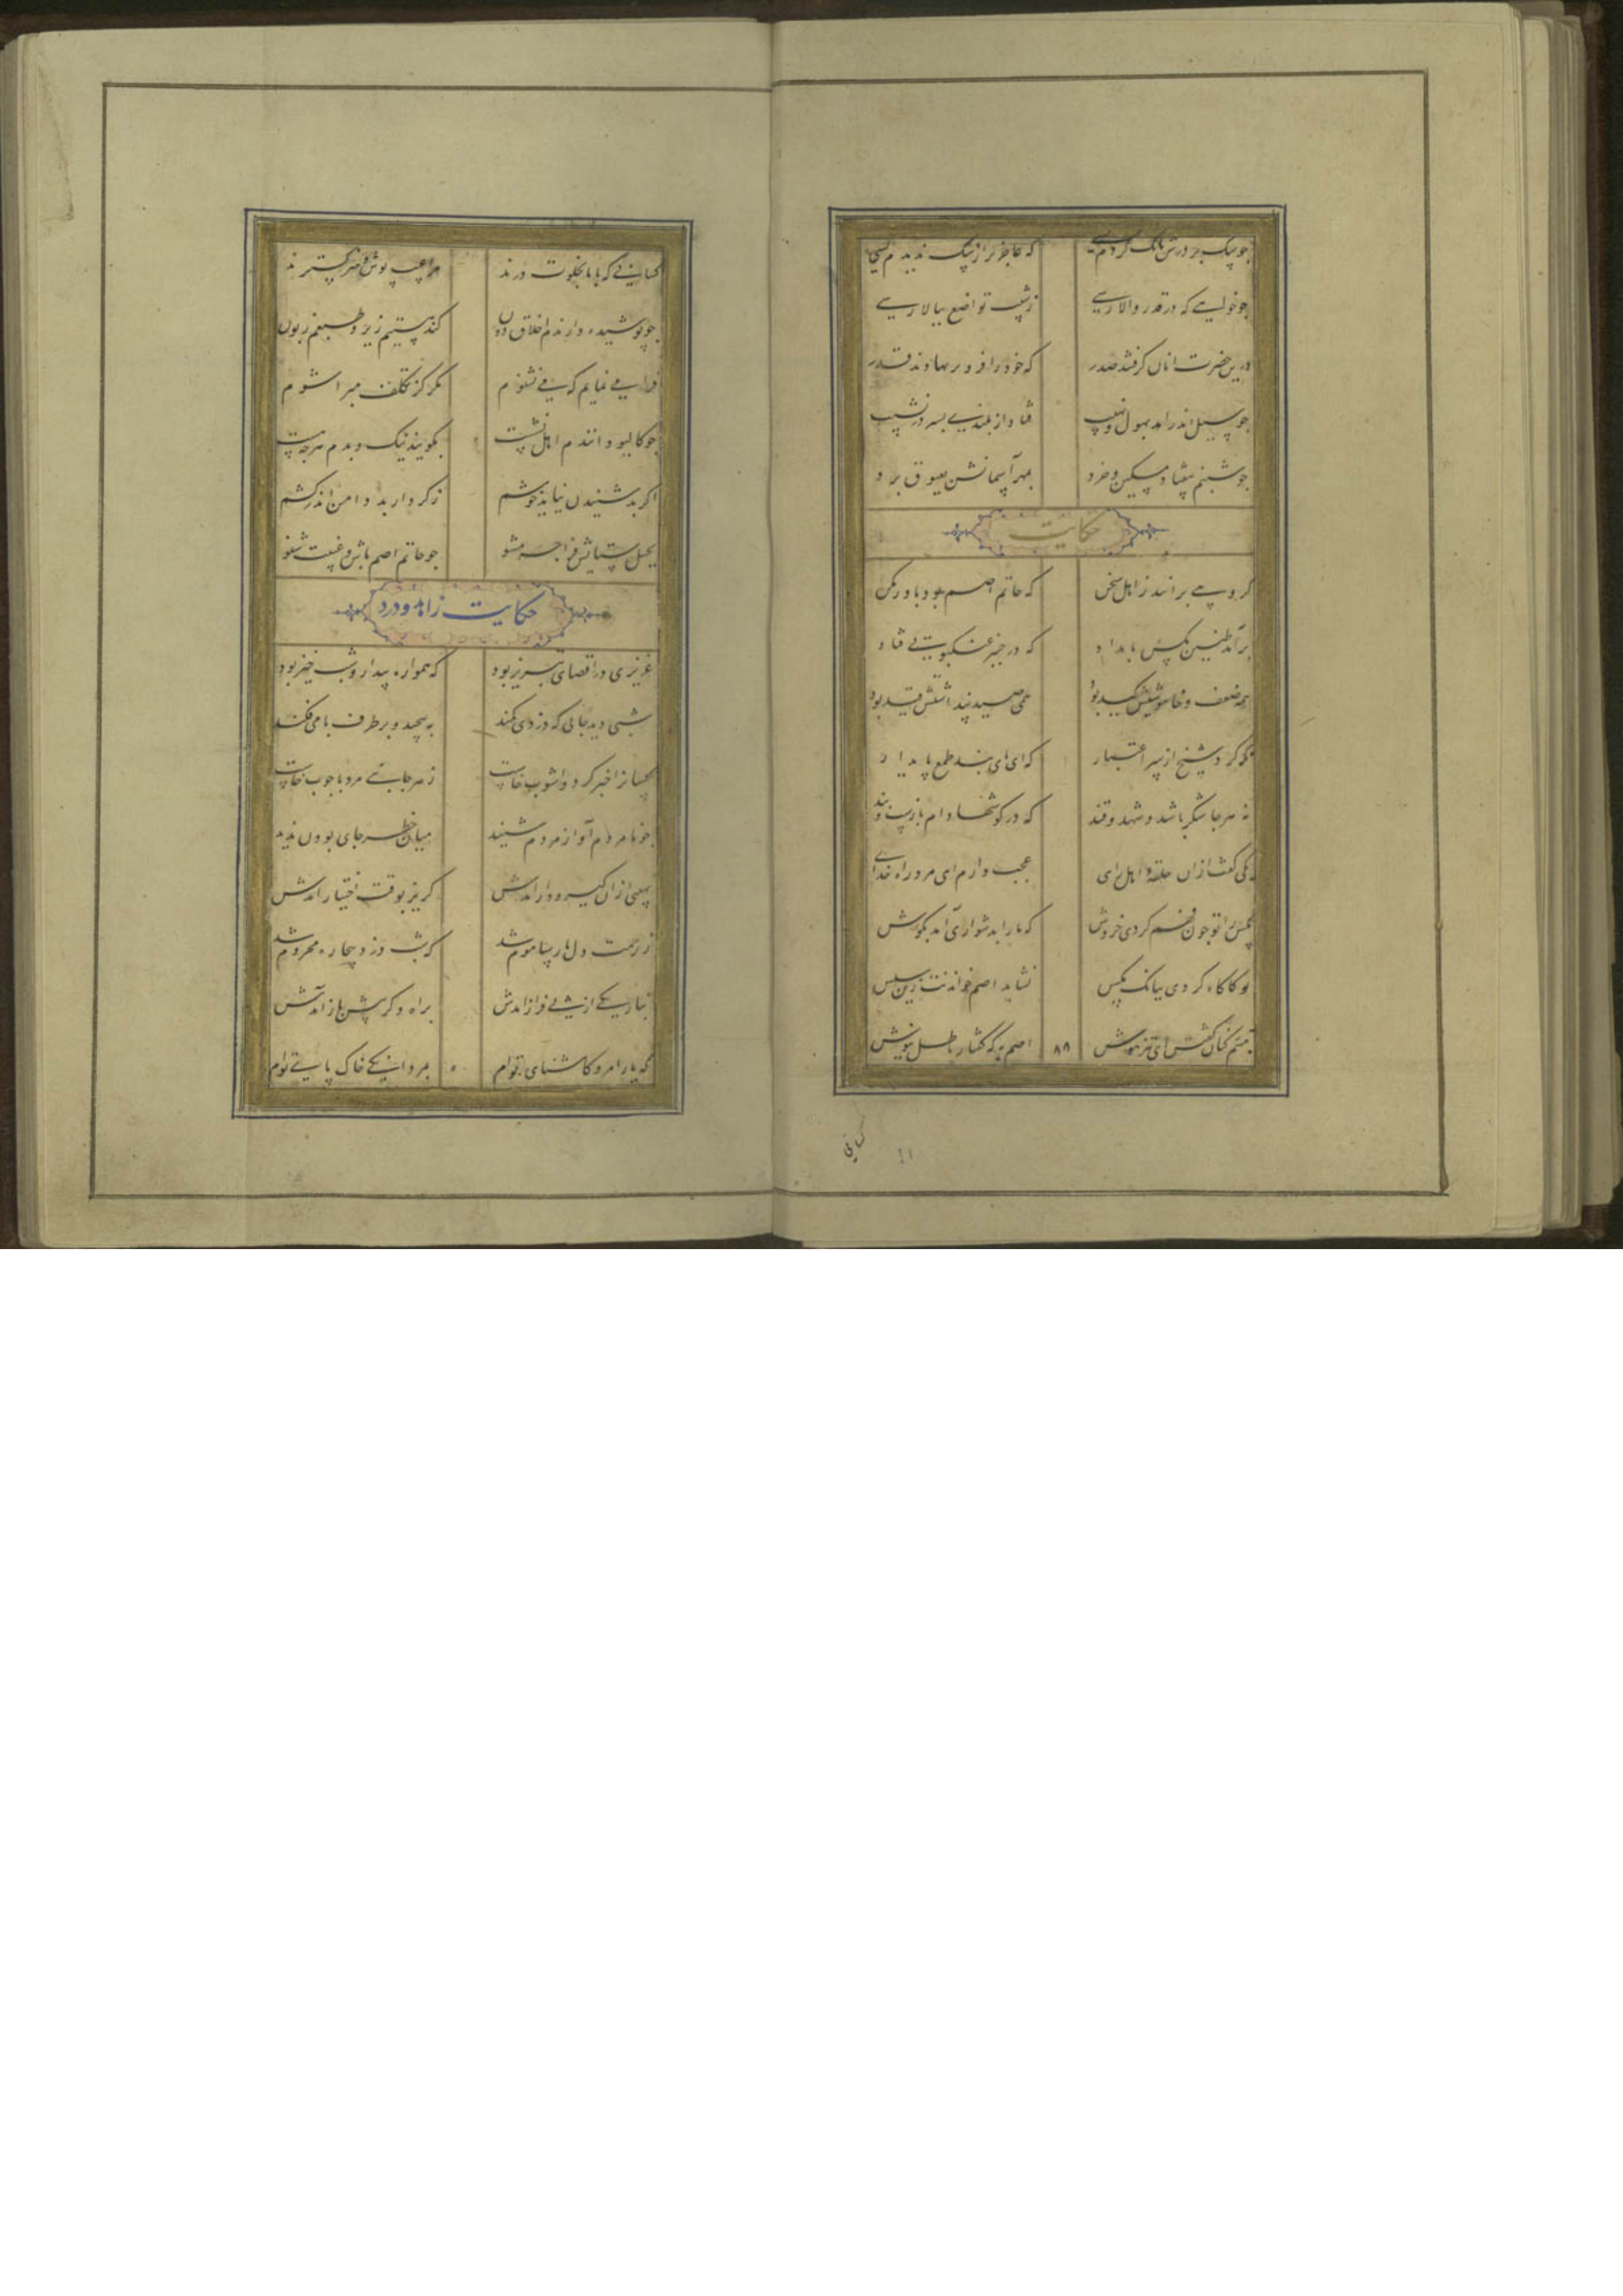 چو سگ بر درش بانگ کردم بسی که عاجزتر از سگ ندیدم کسی
چو خواهی که در قدر والا رسی ز شیب تواضع ببالا رسی
درین حضرت آنان گرفتند صدر که خود را فروتر نهادند قدر
چو سیل اندر آمد بهول و نهیب فتاد از بلندی بسر در نشیب
چو شبنم بیفتاد مسکین و خرد بمهر آسمانش بعیوق برد
حکایت
گروهی برانند ز اهل سخن که حاتم اصم بود باور مکن
برآمد طنین مگس بامداد که در چنبر عنکبوتی فتاد
همه ضعف و خاموشیش کید بود مگس صید پنداشتش قید بود
نگه کرد شیخ از سر اعتبار که ای پای بند طمع پای دار
نه هر جا شکر باشد و شهد و قند که در گوشها دام بازست و بند
یکی گفت ازان حلقه اهل رای عجب دارم ای مرد راه خدای
مگس را تو چون فهم کردی خروش که ما را بدشواری آمد بگوش
تو کاگاه کردی ببانگ مگس نشاید اصم خواندنت زین سپس
تبسم کنان گفتش ای تیز هوش اصم به که گفتار باطل نیوش
۸۸
کسانی که با ما بخلوت درند مرا عیب پوش و هنر گسترند
چو پوشیده دارندم اخلاق دون کند هستیم زیر و طبعم زبون
فرا می نمایم که می نشنوم مگر کز تکلف مبرا شوم
چو کالیو دانندم اهل نشست بگویند نیک و بدم هرچه هست
اگر بد شنیدن نیاید خوشم ز کردار بد دامن اندر کشم
بحبل ستایش فراچه مشو چو حاتم اصم باش و غیبت شنو
حکایت زاهد و درد
عزیزی در اقصای تبریز بود که همواره بیدار و شب خیز بود
شبی دید جائی که دزدی کمند به پیچید و بر طرف بامی فکند
کسانرا خبر کرد و آشوب خاست ز هر جانبی مرد با چوب خاست
چو نامردم آواز مردم شنید میان خطر جای بودن ندید
نهیبی ازان گیر و دار آمدش گریز بوقت اختیار آمدش
ز رحمت دل پارسا موم شد که شب دزد بیچاره محروم شد
بتاریکی از پی فراز آمدش براه دگر پیش باز آمدش
که یارا مرو کاشنای توام بمردانگی خاک پای توام
کسانی